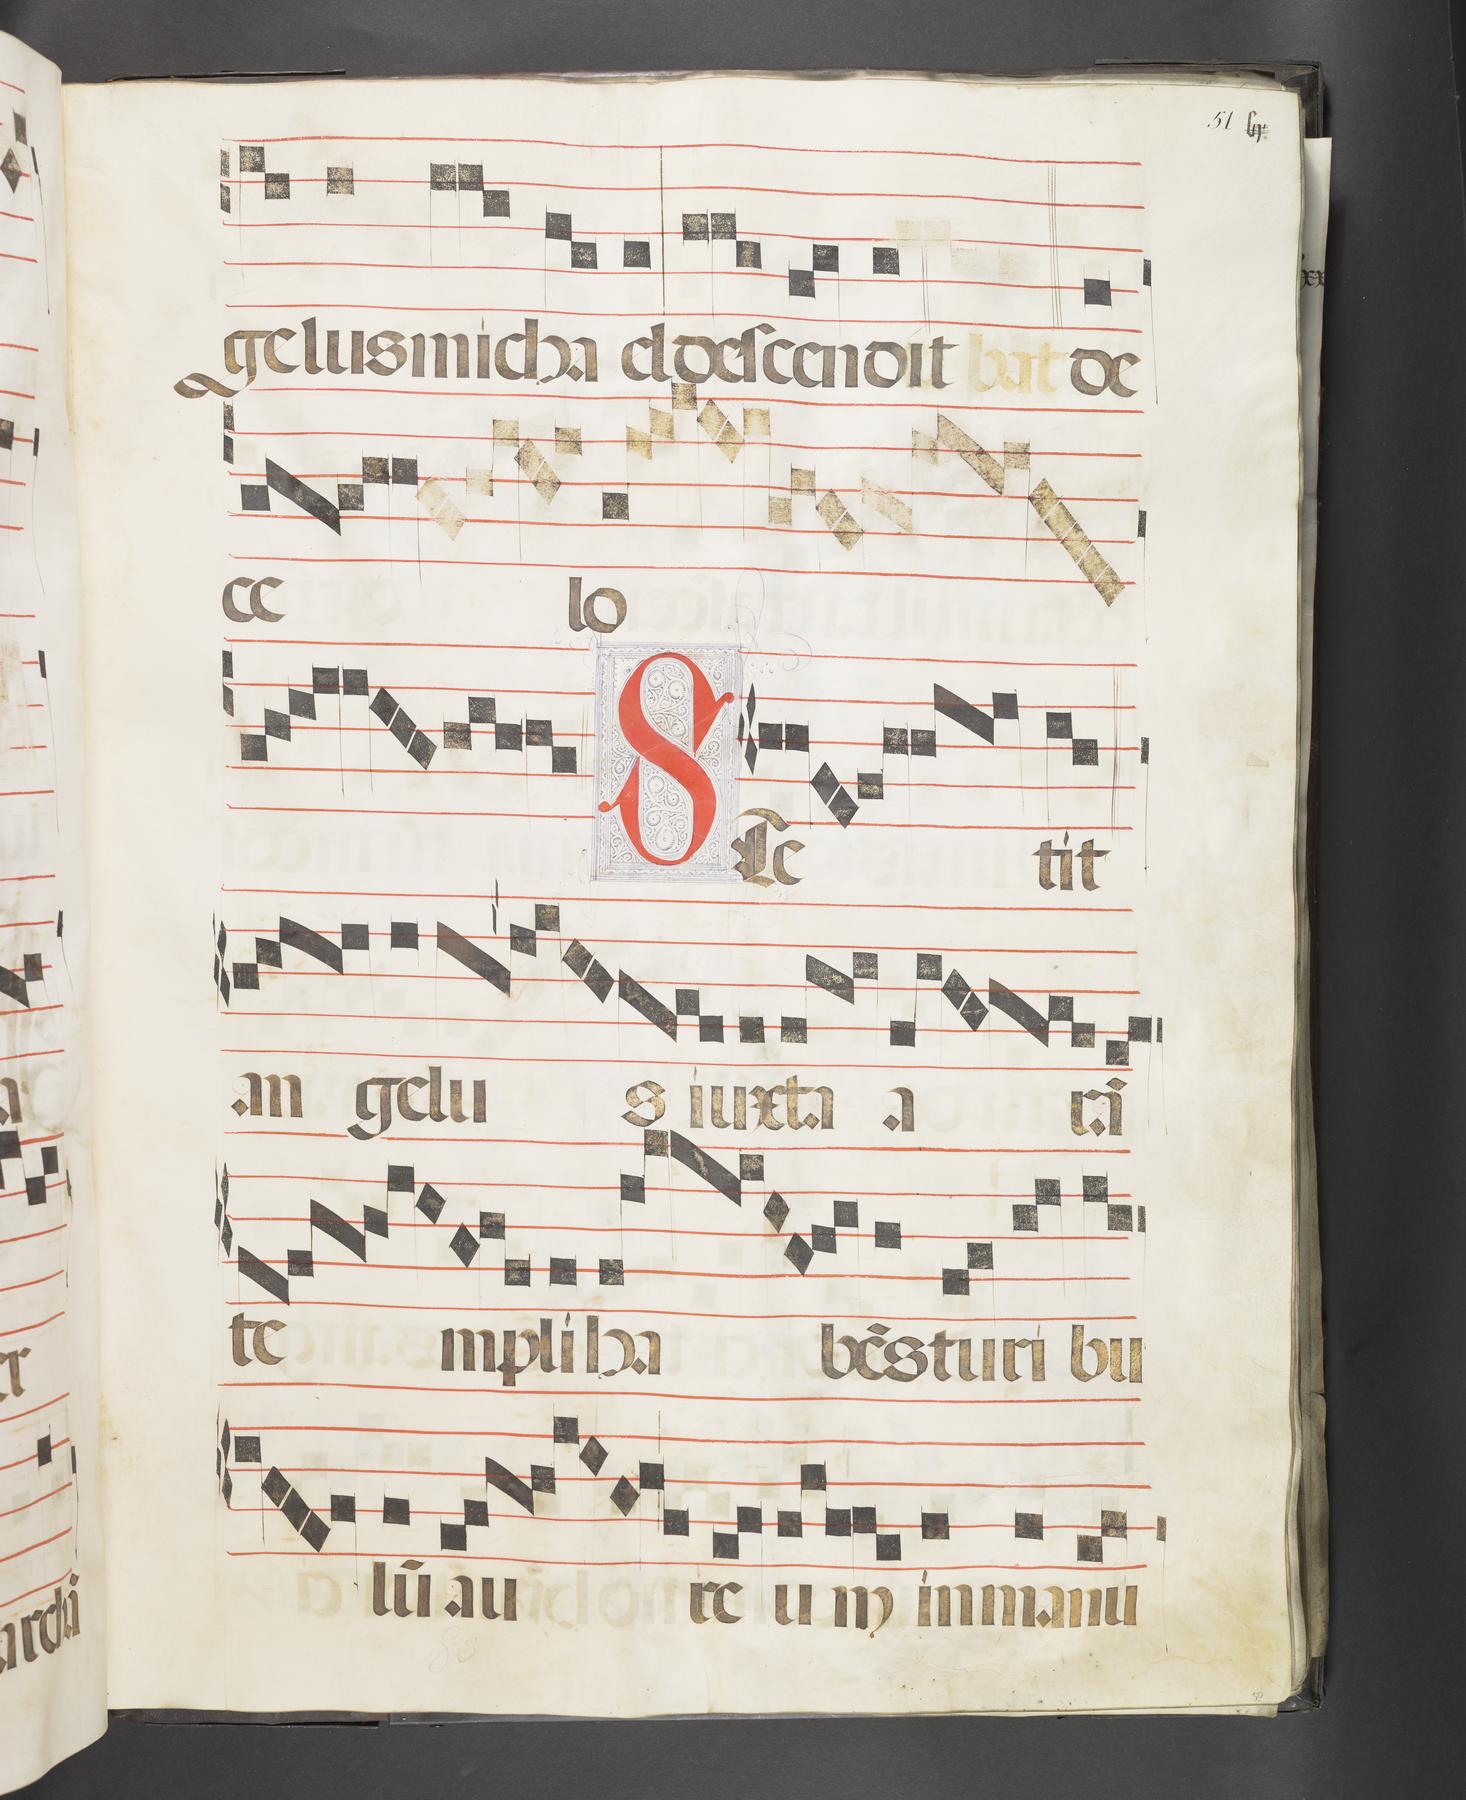 51
gelus micha el descendit bat de
ce lo
S Te tit
an gelu s iuxta a rā
te mpli ha bēs turi bu
lū au re u m in manu